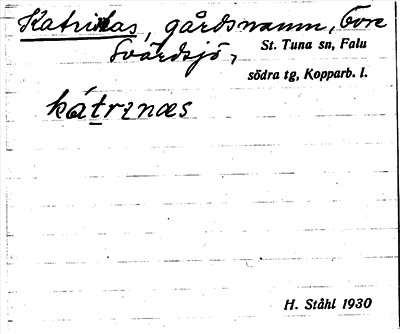 Katrinas, gårdsnamn, Övre
Svärdsjö,
St. Tuna sn, Falu
södra tg, Kopparb. l.
kátrɪnæs
H. Ståhl 1930